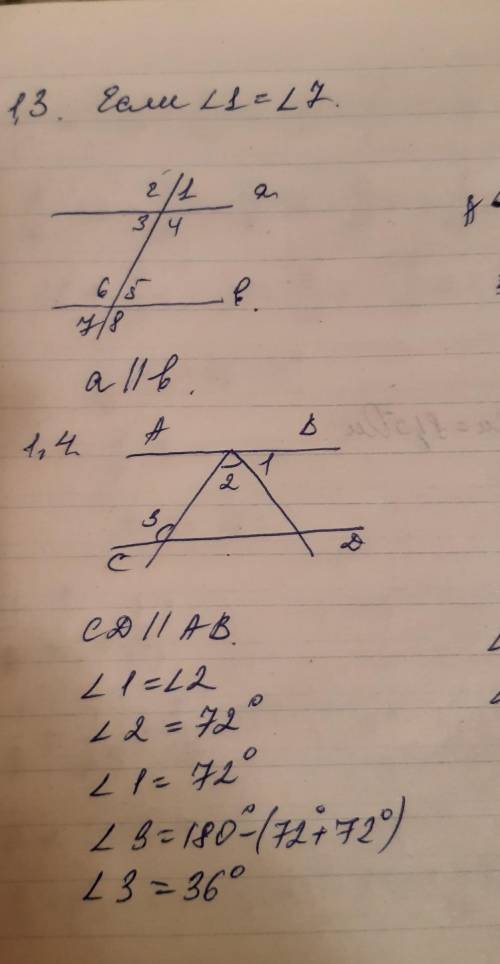 1,3. Если ∠1 = ∠7.
2 1 a
3 4
6 5 b.
7 8
a || b.
1,4. A B
2 1
3
C D
CD || AB.
∠1 = ∠2
∠2 = 72°
∠1 = 72°
∠3 = 180° - (72° + 72°)
∠3 = 36°